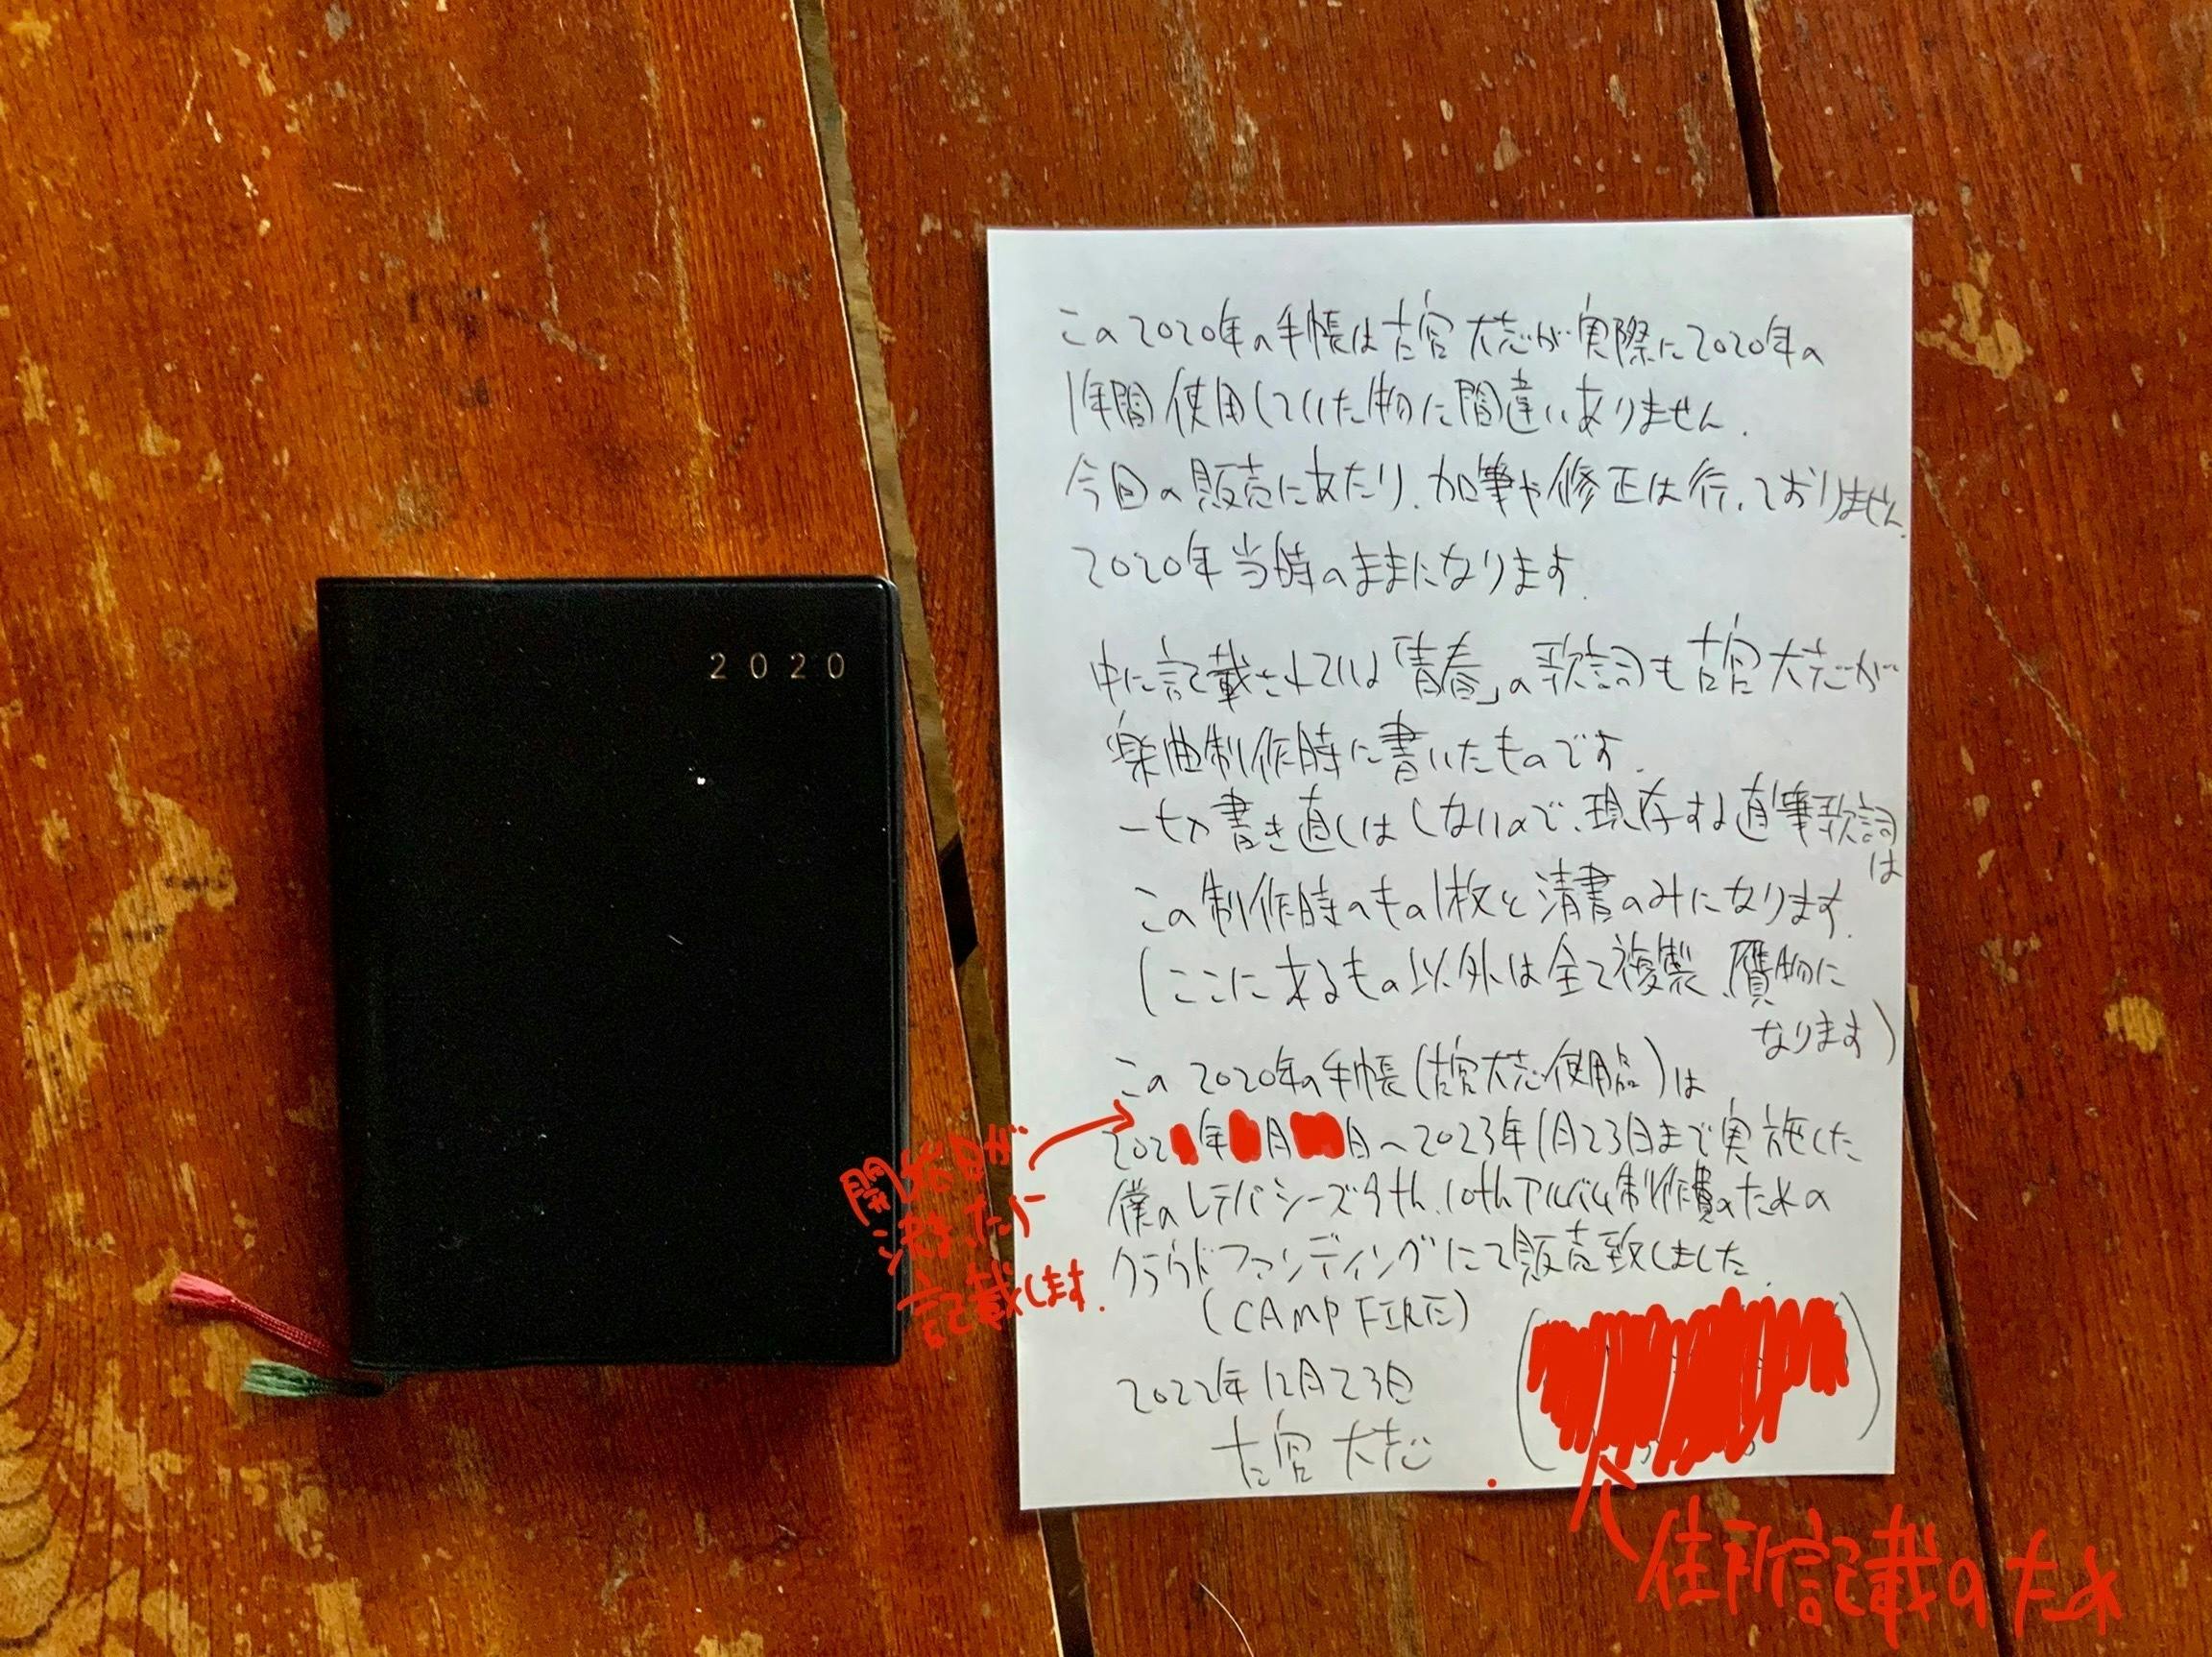 2020
この2020年の手帳は古宮大志が実際に2020年の
1年間使用していた物に間違いありません.
今回の販売にあたり、加筆や修正は行っておりません
2020年当時のままになります.
中に記載されている「青春」の歌詞も古宮大志が
楽曲制作時に書いたものです.
一切書き直しはしないので、現存する直筆歌詞
は
この制作時のもの1枚と清書のみになります.
(ここに来るもの以外は全て複製、贋物に
なります)
この2020年の手帳(古宮大志使用品)は
202 年 月 日~2023年1月23日まで実施した
僕のレテパシーズ9th、10thアルバム制作費のための
クラウドファンディングにて販売致しました.
(CAMP FIRE)
2022年12月23日
古宮大志
開始日が
決まったら
記載します.
住所記載のため